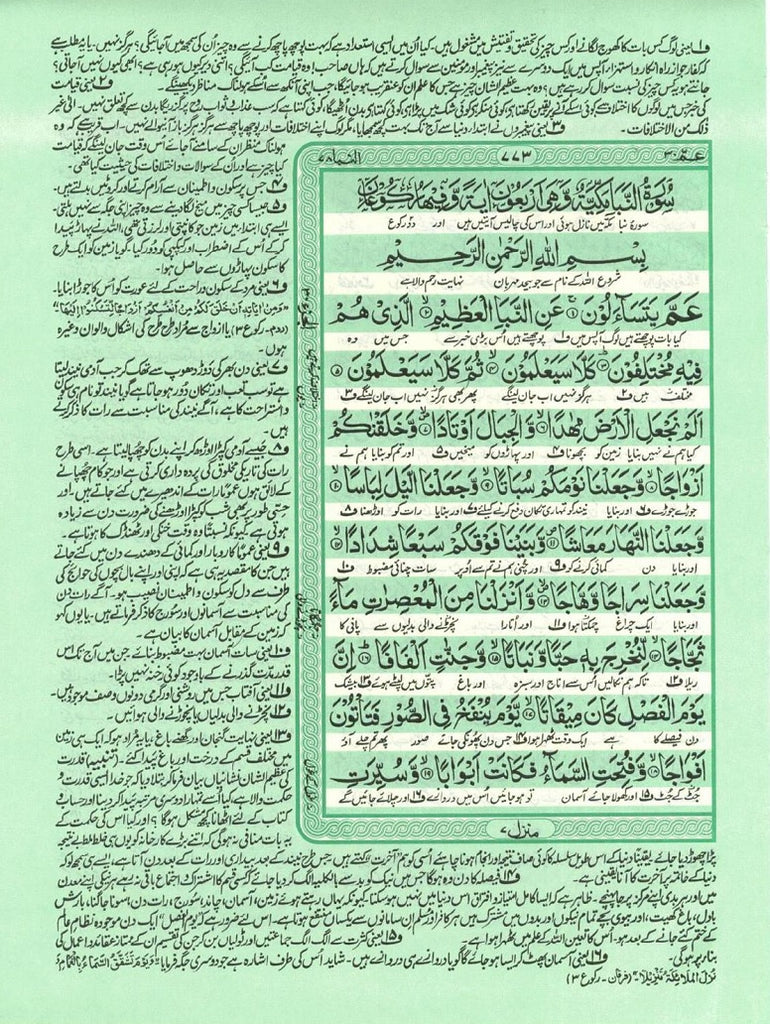 ف۱ یعنی لوگ کس بات کا کھوج لگانے اور کس چیز کی تحقیق و تفتیش میں مشغول ہیں۔ کیا اُن میں ایسی استعداد ہے کہ بہت پوچھ پاچھ کرنے سے وہ چیز اُن کی سمجھ میں آجائیگی؟ ہرگز نہیں۔ یا یہ مطلب ہے
کہ کفار جو از راہ انکار و استہزاء آپس میں ایک دوسرے سے نیز پیغمبر اور مومنین سے سوال کرتے ہیں کہ ہاں صاحب! وہ قیامت کب آئیگی؟ اتنی دیر کیوں ہو رہی ہے؟ ابھی کیوں نہیں آجاتی؟
جانتے ہو یہ کس چیز کی نسبت سوال کر رہے ہیں؟ وہ بہت عظیم الشان چیز ہے جس کا علم ان کو عنقریب ہو جائیگا، جب اپنی آنکھ سے اُسکے ہولناک مناظر دیکھینگے۔ ف۲ یعنی قیامت
ف۳ یعنی پیغمبروں نے ابتداءِ دنیا سے آج تک بہت کچھ سمجھایا، مگر لوگ اپنے اختلافات اور پوچھ پاچھ سے ہرگز ہرگز باز آنیوالے نہیں۔ اب قریب ہے کہ وہ
ہولناک منظر ان کے سامنے آجائے اُس وقت جان لینگے کہ قیامت
کیا چیز ہے اور ان کے سوالات و اختلافات کی حیثیت کیا تھی۔
عمّ ۳۰
۷۷۳
النبا ۷۸
سُوْرَةُ النَّبَاِ مَكِّيَّةٌ وَّهِيَ اَرْبَعُوْنَ اٰيَةً وَّفِيْهَا رُكُوْعَانِ
سورۂ نبا مکہ میں نازل ہوئی اور اس کی چالیس آیتیں ہیں اور دو رکوع
بِسْمِ اللّٰهِ الرَّحْمٰنِ الرَّحِيْمِ
شروع اللہ کے نام سے جو بیحد مہربان نہایت رحم والا ہے
عَمَّ يَتَسَآءَلُوْنَ ۱ عَنِ النَّبَاِ الْعَظِيْمِ ۲ الَّذِيْ هُمْ
کیا بات پوچھتے ہیں لوگ آپس میں ف۱ پوچھتے ہیں اُس بڑی خبر سے جس میں وہ
فِيْهِ مُخْتَلِفُوْنَ ۳ كَلَّا سَيَعْلَمُوْنَ ۴ ثُمَّ كَلَّا سَيَعْلَمُوْنَ ۵
مختلف ہیں ف۲ ہرگز نہیں اب جان لینگے پھر بھی ہرگز نہیں اب جان لینگے ف۳
اَلَمْ نَجْعَلِ الْاَرْضَ مِهٰدًا ۶ وَّالْجِبَالَ اَوْتَادًا ۷ وَّخَلَقْنٰكُمْ
کیا ہم نے نہیں بنایا زمین کو بچھونا ف۴ اور پہاڑوں کو میخیں ف۵ اور تم کو بنایا ہم نے
اَزْوَاجًا ۸ وَّجَعَلْنَا نَوْمَكُمْ سُبَاتًا ۹ وَّجَعَلْنَا الَّيْلَ لِبَاسًا ۱۰
جوڑے جوڑے ف۶ اور بنایا نیند کو تمہاری تکان دفع کرنے کیلئے ف۷ اور بنایا رات کو اوڑھنا ف۸
وَّجَعَلْنَا النَّهَارَ مَعَاشًا ۱۱ وَّبَنَيْنَا فَوْقَكُمْ سَبْعًا شِدَادًا ۱۲
اور بنایا دن کمائی کرنے کو ف۹ اور چُنی ہم نے تم سے اُوپر سات چنائی مضبوط ف۱۰
وَّجَعَلْنَا سِرَاجًا وَّهَّاجًا ۱۳ وَّاَنْزَلْنَا مِنَ الْمُعْصِرٰتِ مَآءً
اور بنایا ایک چراغ چمکتا ہوا ف۱۱ اور اُتارا نچڑنے والی بدلیوں سے پانی کا
ثَجَّاجًا ۱۴ لِّنُخْرِجَ بِهٖ حَبًّا وَّنَبَاتًا ۱۵ وَّجَنّٰتٍ اَلْفَافًا ۱۶ اِنَّ
ریلا ف۱۲ تاکہ ہم نکالیں اُس سے اناج اور سبزہ اور باغ پتّوں میں لپٹے ہوئے ف۱۳ بیشک
يَوْمَ الْفَصْلِ كَانَ مِيْقَاتًا ۱۷ يَّوْمَ يُنْفَخُ فِي الصُّوْرِ فَتَاْتُوْنَ
دن فیصلے کا ہے ایک وقت ٹھہرا ہوا ف۱۴ جس دن پھونکی جائے صور پھر تم چلے آؤ
اَفْوَاجًا ۱۸ وَّفُتِحَتِ السَّمَآءُ فَكَانَتْ اَبْوَابًا ۱۹ وَّسُيِّرَتِ
جُٹ کے جُٹ ف۱۵ اور کھولا جائے آسمان تو ہو جائیں اُس میں دروازے ف۱۶ اور چلائے جائیں گے
منزل ۷
ف۴ جس پر سکون و اطمینان سے آرام کرتے اور کروٹیں بدلتے ہیں۔
ف۵ جیسا کسی چیز میں میخ لگا دینے سے وہ چیز اپنی جگہ سے نہیں ہلتی۔
ایسے ہی ابتداء میں زمین جو کانپتی اور لرزتی تھی، اللہ نے پہاڑ پیدا
کر کے اُس کے اضطراب اور کپکپی کو دُور کیا۔ گویا زمین کو ایک طرح
کا سکون پہاڑوں سے حاصل ہوا۔
ف۶ یعنی مرد کے سکون و راحت کے لئے عورت کو اُس کا جوڑا بنایا۔
"وَمِنْ اٰيٰتِهٖٓ اَنْ خَلَقَ لَكُمْ مِّنْ اَنْفُسِكُمْ اَزْوَاجًا لِّتَسْكُنُوْٓا اِلَيْهَا"
(روم۔ رکوع ۳) یا ازواج سے مُراد طرح طرح کی اشکال و الوان وغیرہ
ہوں۔
ف۷ یعنی دن بھر کی دَوڑ دھوپ سے تھک کر جب آدمی نیند لیتا
ہے تو سب تعب اور تکان دُور ہو جاتا ہے گویا نیند تو نام ہی سکون
و استراحت کا ہے، آگے نیند کی مناسبت سے رات کا ذکر کرتے
ہیں۔
ف۸ جیسے آدمی کپڑا اوڑھ کر اپنے بدن کو چھپا لیتا ہے۔ اسی طرح
رات کی تاریکی مخلوق کی پردہ داری کرتی ہے اور جو کام چھپانے
کے لائق ہوں عمومًا رات کے اندھیرے میں کئے جاتے ہیں۔ اور
حسّی طور پر بھی شب کو کپڑا اوڑھنے کی ضرورت دن سے زیادہ
ہوتی ہے کیونکہ نسبتًا وہ وقت خنکی اور ٹھنڈک کا ہوتا ہے۔
ف۹ یعنی عمومًا کاروبار اور کمائی کے دھندے دن میں کئے جاتے
ہیں جن کا مقصد یہ ہی ہے کہ اپنی اور اپنے بال بچوں کی حوائج کی
طرف سے دل کو سکون و اطمینان نصیب ہو۔ آگے رات دن
کی مناسبت سے آسمانوں اور سورج کا ذکر فرماتے ہیں۔ یا یوں کہو
کہ زمین کے مقابل آسمان کا بیان ہے۔
ف۱۰ یعنی سات آسمان بہت مضبوط بنائے جن میں آج تک اس
قدر مدت گذرنے کے باوجود کوئی رخنہ نہیں پڑا۔
ف۱۱ یعنی آفتاب جس میں روشنی اور گرمی دونوں وصف موجود ہیں۔
ف۱۲ نچڑنے والی بدلیاں یا نچوڑنے والی ہوائیں۔
ف۱۳ یعنی نہایت گنجان اور گھنے باغ، یا یہ مراد ہو کہ ایک ہی زمین
میں مختلف قسم کے درخت اور باغ پیدا کئے۔ (تنبیہ) قدرت
کی عظیم الشان نشانیاں بیان فرما کر بتلا دیا کہ جو خدا ایسی قدرت و
حکمت والا ہے، کیا اُسے تمہارا دوسری مرتبہ پیدا کر دینا اور حساب و
کتاب کے لئے اٹھانا کچھ مشکل ہوگا؟ اور کیا اس کی حکمت کے
یہ بات منافی نہ ہوگی کہ اتنے بڑے کارخانہ کو یوں ہی خلط ملط بے نتیجہ
پڑا چھوڑ دیا جائے یقینًا دنیا کے اس طویل سلسلہ کا کوئی صاف نتیجہ اور انجام ہونا چاہئے اُسی کو ہم آخرت کہتے ہیں۔ جس طرح نیند کے بعد بیداری اور رات کے بعد دن آتا ہے، ایسے ہی سمجھ لو کہ
دنیا کے خاتمہ پر آخرت کا آنا یقینی ہے۔ ف۱۴ فیصلہ کا دن وہ ہوگا جس میں نیک کو بد سے بالکلیہ الگ کر دیا جائے کہ کسی قسم کا اشتراک و اجتماع باقی نہ رہے ہر نیکی اپنے معدن
میں اور ہر بدی اپنے مرکز پر جا پہنچے۔ ظاہر ہے کہ ایسا کامل امتیاز و افتراق اس دنیا میں نہیں ہو سکتا کیونکہ یہاں رہتے ہوئے زمین، آسمان، چاند، سورج، رات، دن، سونا جاگنا، بارش
بادل، باغ، کھیت، اور بیوی بچے تمام نیکوں اور بدوں میں مشترک ہیں ہر کافر اور مسلم ان سامانوں سے یکساں منتفع ہوتا ہے۔ اس لئے ضرور ہے کہ "یوم الفصل" ایک دن موجودہ نظامِ عالم
کے ختم کئے جانے کے بعد ہو۔ اُس کا تعین اللہ کے علم میں ٹھہرا ہوا ہے۔ ف۱۵ یعنی کثرت سے الگ الگ جماعتیں اور ٹولیاں بن کر جن کی تقسیم ان کے ممتاز عقائد و اعمال کی
بنا پر ہوگی۔ ف۱۶ یعنی آسمان پھٹ کر ایسا ہو جائے گا گویا دروازے ہی دروازے ہیں۔ شاید اس کی طرف اشارہ ہے جو دوسری جگہ فرمایا "وَيَوْمَ تَشَقَّقُ السَّمَآءُ بِالْغَمَامِ وَ
نُزِّلَ الْمَلٰٓئِكَةُ تَنْزِيْلًا" (فرقان۔ رکوع ۳)